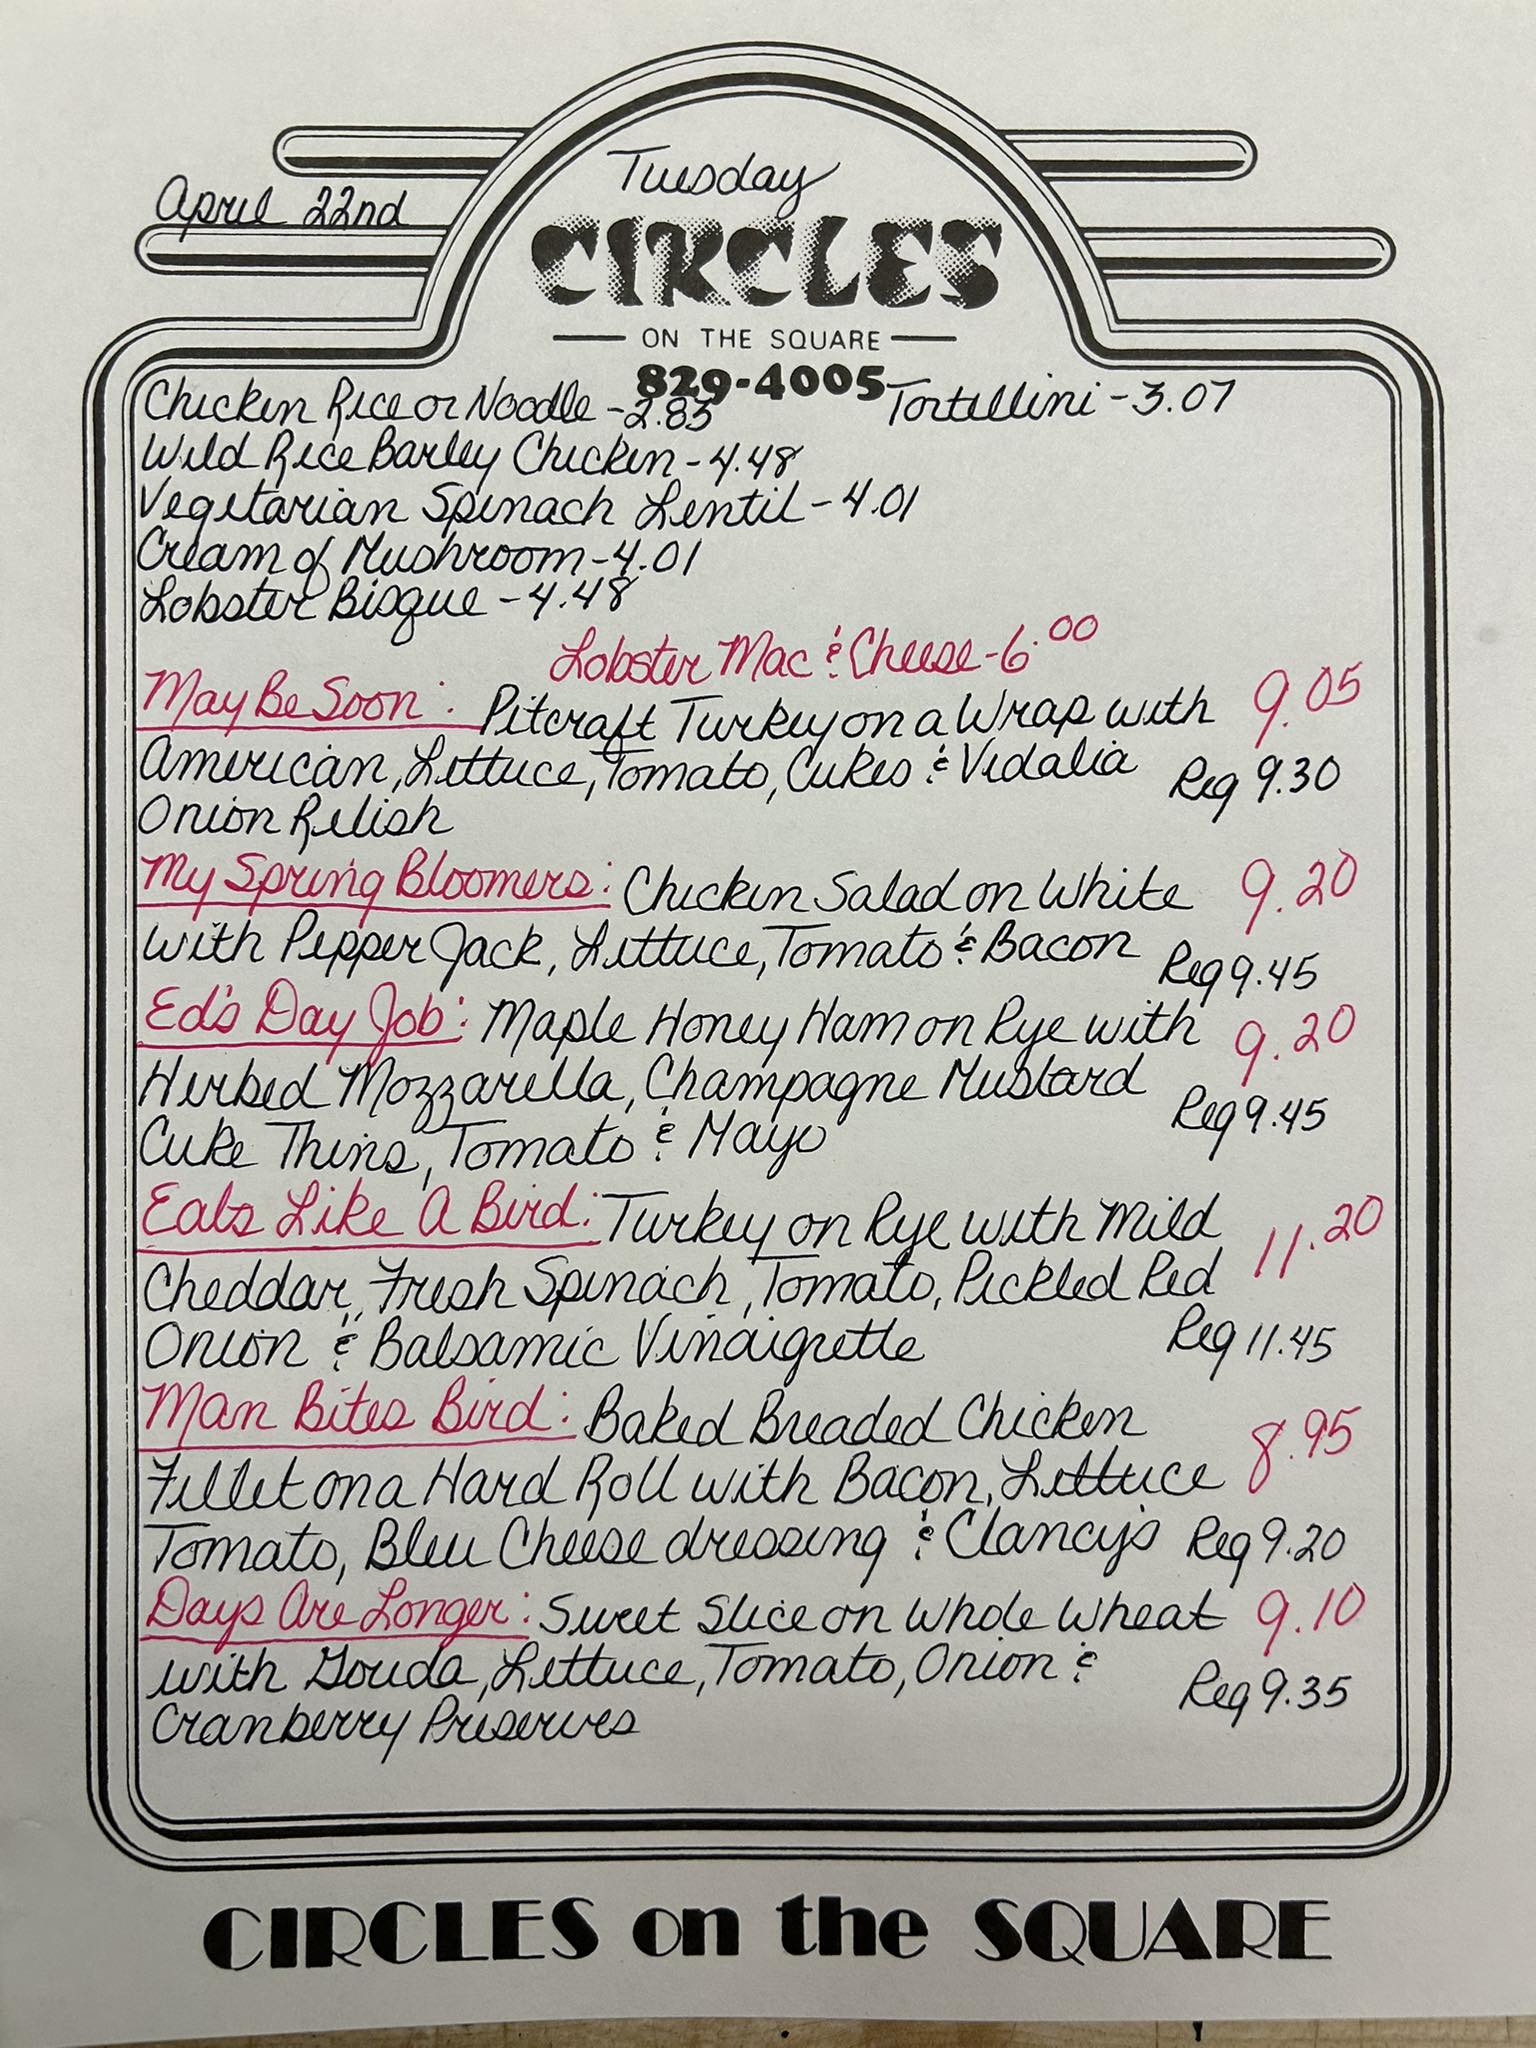 Tuesday
April 22nd
CIRCLES
ON THE SQUARE
829-4005
Chicken Rice or Noodle - 2.83 Tortellini - 3.07
Wild Rice Barley Chicken - 4.48
Vegetarian Spinach Lentil - 4.01
Cream of Mushroom - 4.01
Lobster Bisque - 4.48
Lobster Mac & Cheese - 6.00
May Be Soon: Pitcraft Turkey on a Wrap with 9.05
American, Lettuce, Tomato, Cukes & Vidalia Reg 9.30
Onion Relish
My Spring Bloomers: Chicken Salad on White 9.20
with Pepper Jack, Lettuce, Tomato & Bacon Reg 9.45
Ed's Day Job: Maple Honey Ham on Rye with 9.20
Herbed Mozzarella, Champagne Mustard Reg 9.45
Cuke Thins, Tomato & Mayo
Eats Like A Bird: Turkey on Rye with Mild 11.20
Cheddar, Fresh Spinach, Tomato, Pickled Red
Onion & Balsamic Vinaigrette Reg 11.45
Man Bites Bird: Baked Breaded Chicken 8.95
Fillet on a Hard Roll with Bacon, Lettuce
Tomato, Bleu Cheese dressing & Clancy's Reg 9.20
Days Are Longer: Sweet Slice on Whole Wheat 9.10
with Gouda, Lettuce, Tomato, Onion & Reg 9.35
Cranberry Preserves
CIRCLES on the SQUARE